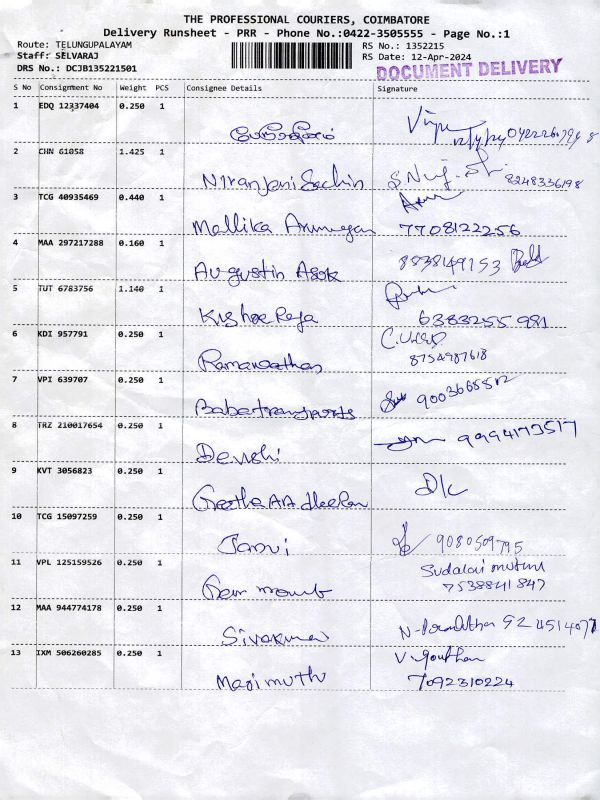 THE PROFESSIONAL COURIERS, COIMBATORE
Delivery Runsheet - PRR - Phone No.:0422-3505555 - Page No.:1
Route: TELUNGUPALAYAM RS No.: 1352215
Staff: SELVARAJ RS Date: 12-Apr-2024
DRS No.: DCJB135221501 DOCUMENT DELIVERY
S No Consignment No Weight PCS Consignee Details Signature
1 EDQ 12337404 0.250 1
2 CHN 61058 1.425 1
Niranjani Sachin 8248336198
3 TCG 40935469 0.440 1
Mallika Arumugam 7708122256
4 MAA 297217288 0.160 1
Augustin Asok 8838149153
5 TUT 6783756 1.140 1
Kishore Raja 6383255981
6 KDI 957791 0.250 1
Ramanathan 8754987618
7 VPI 639707 0.250 1
Baba transports
8 TRZ 210017654 0.250 1
Devshi 9994173517
9 KVT 3056823 0.250 1
Geetha
10 TCG 15097259 0.250 1
9080509795
11 VPL 125159526 0.250 1
Sudalai muthu
7538841847
12 MAA 944774178 0.250 1
Sivakumar
13 IXM 506260285 0.250 1
V. Gowthan
Marimuth 7092310224